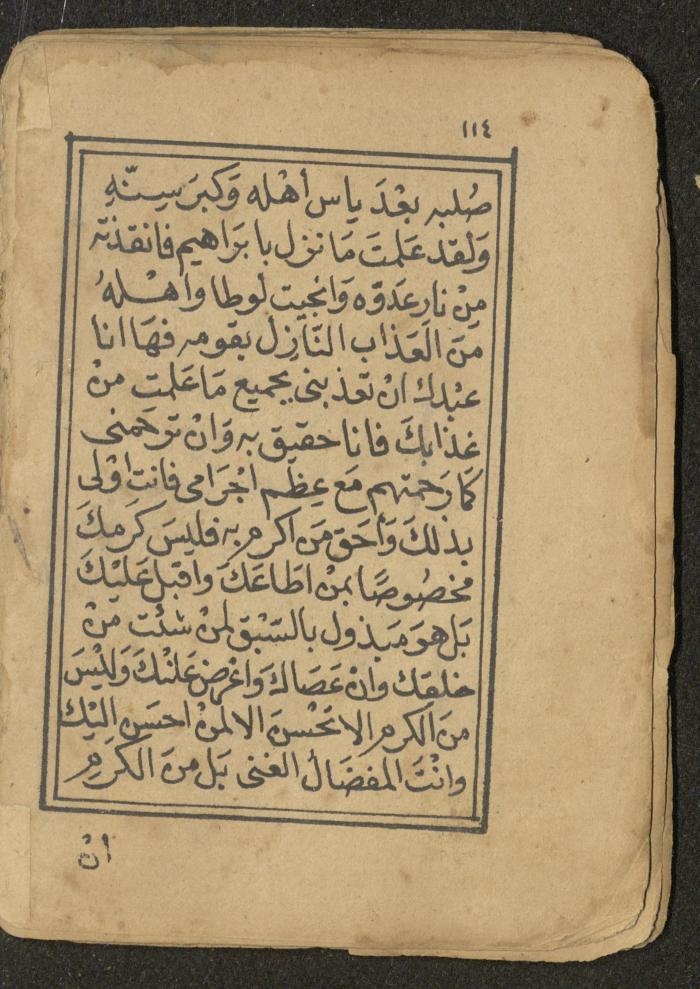 ١١٤
صُلبه بعْدَ ياس أهْله وَكبرَ سِنّهِ
وَلَقد عَلمتَ مَا نزل بابرَاهيم فانقذته
مِنْ نار عَدوّه وَانجيت لوطا واهْلهُ
منَ العَذاب النّازِل بقومه فهَا انا
عبْدك انْ تعّذبنى بجميع مَا عَلمت منْ
عَذابكَ فانا حقيق به وَانْ ترحَمنى
كما رَحمتهم مَع عِظَم اجْرَامى فانت اوْلى
بذلكَ وَأحَق مَن اكرم به فليسَ كَرَمكَ
مخصُوصًا بمنْ اطَاعَكَ واقبل عَليْكَ
بَل هوَ مَبذول بالسّبْق لمنْ شئْت منْ
خلقك وانْ عَصَاكَ وَاعْرض عَليْكَ وَليْسَ
منَ الكرم الا تحْسنَ الا لمنْ احسَن اليْكَ
وانْتَ المفضَالُ الغنى بَل منَ الكرَمِ
انْ